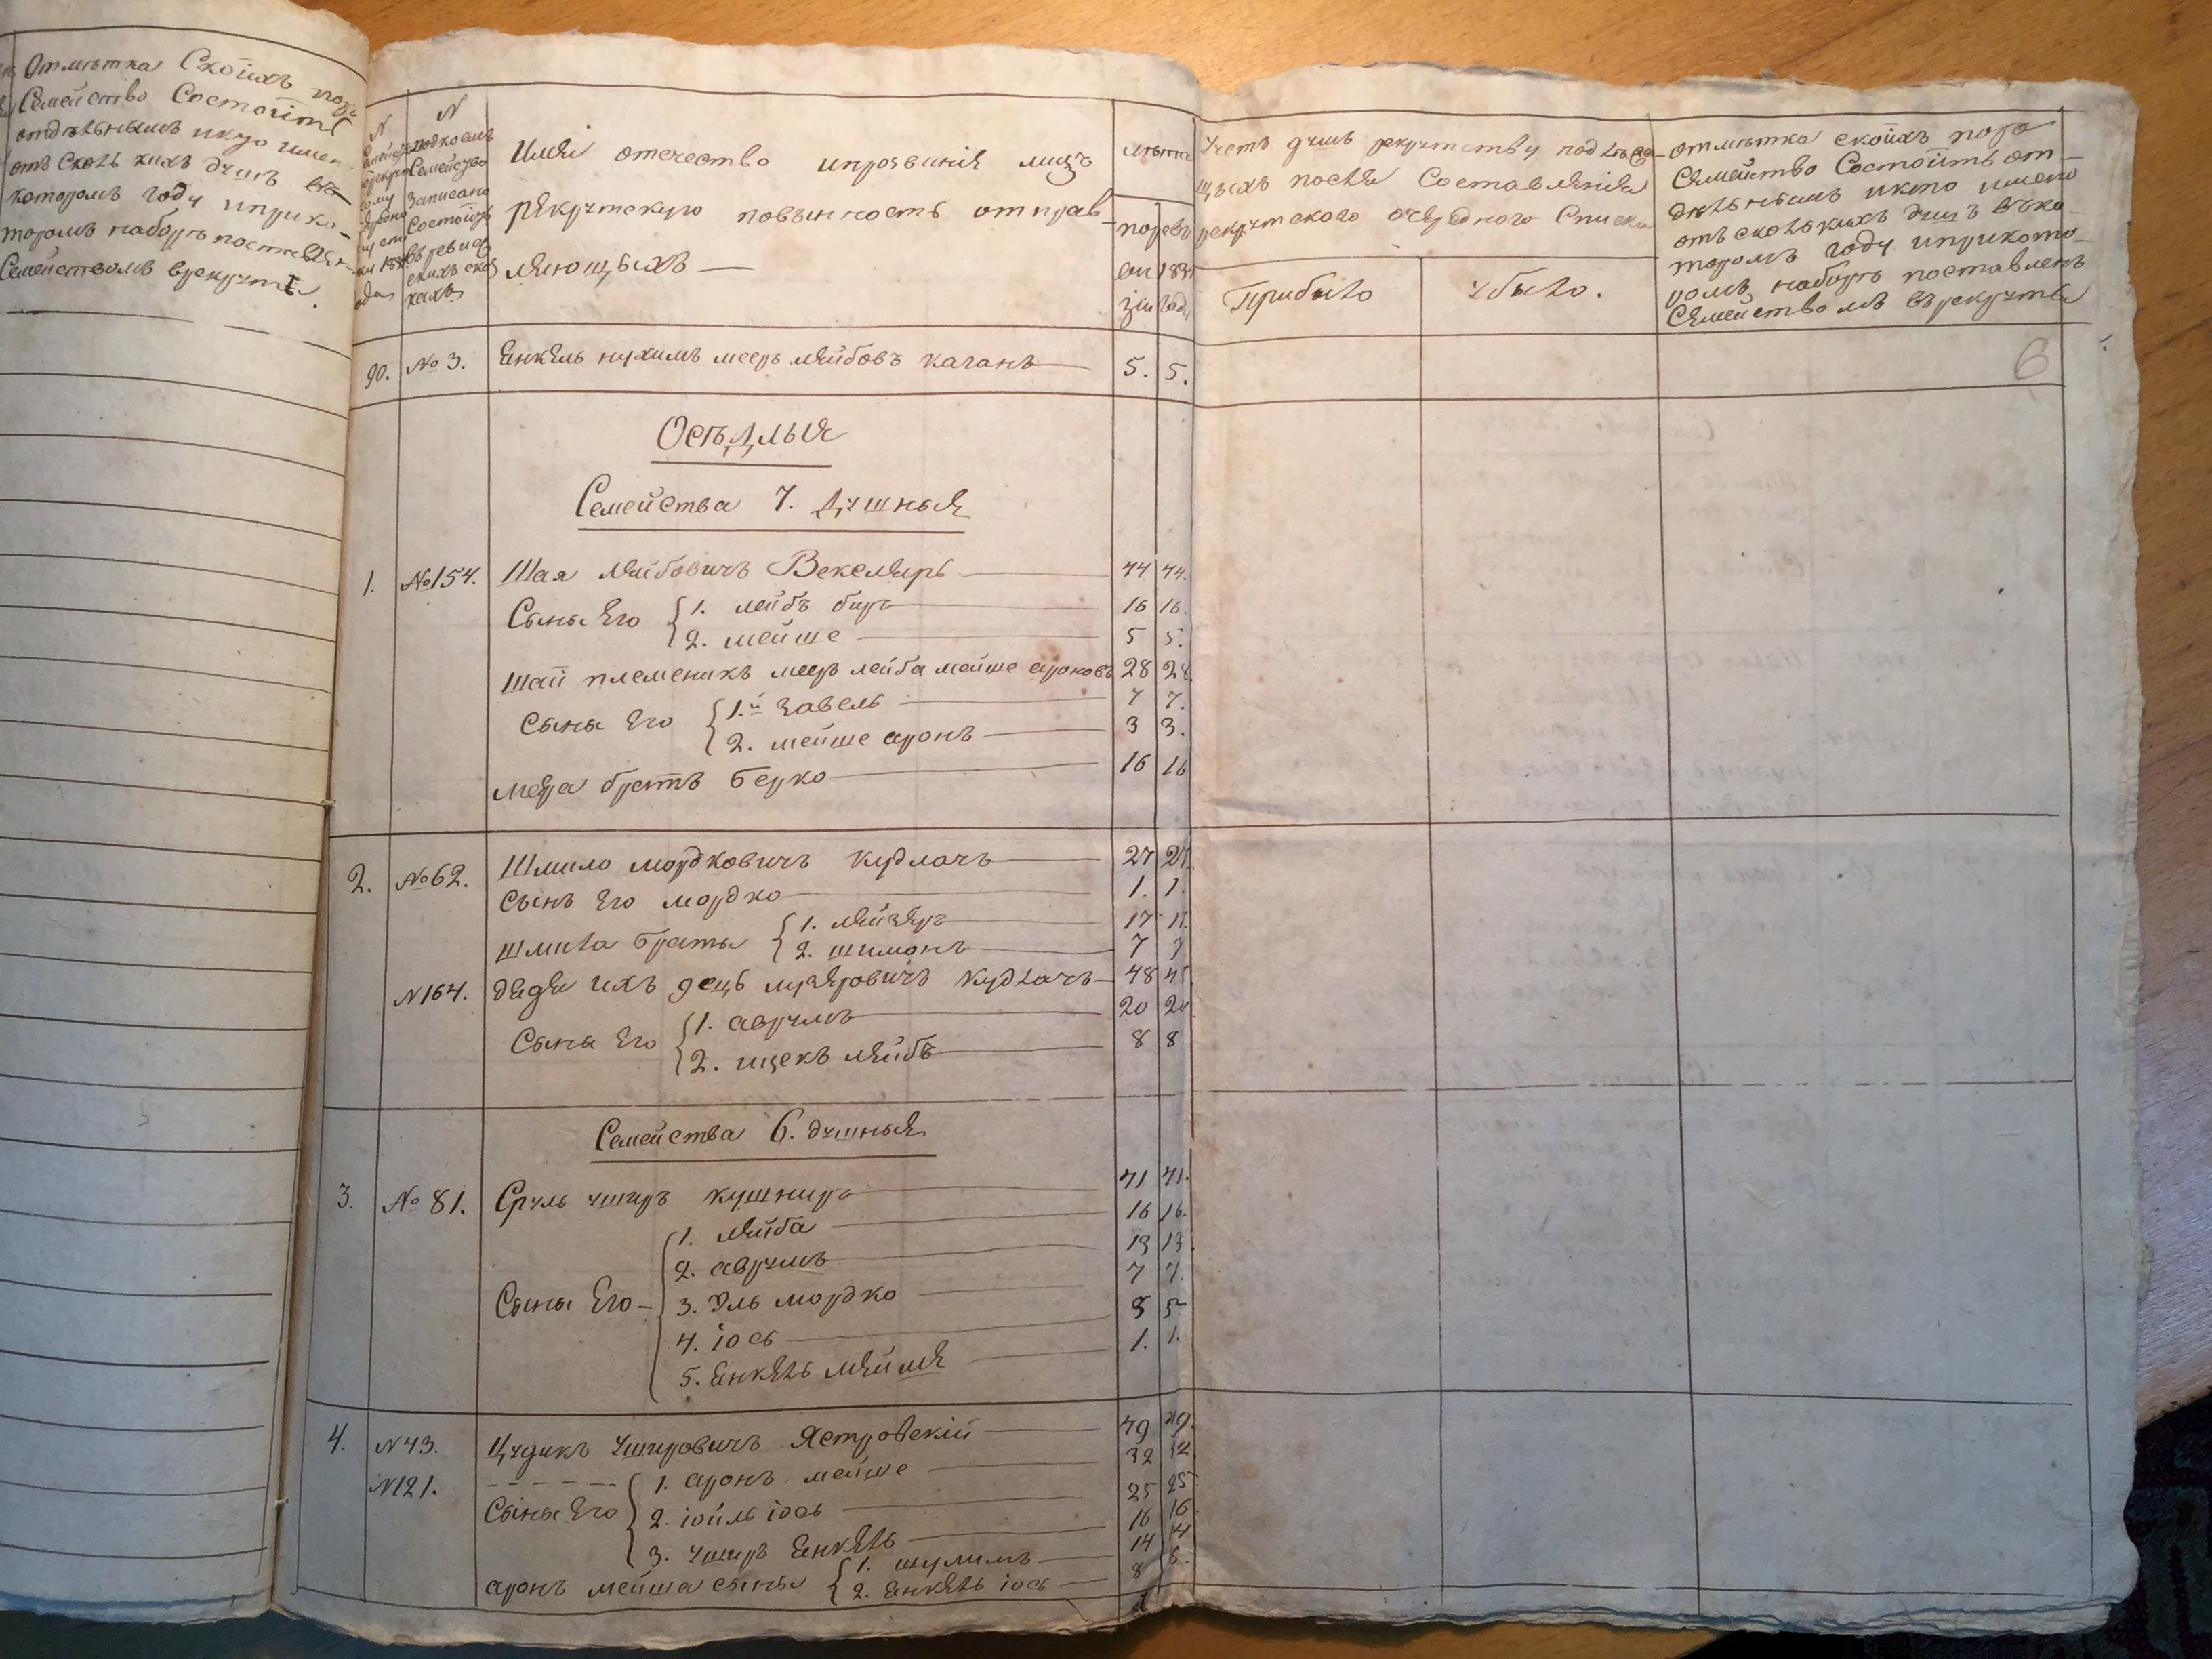 Отмѣтка Скоихъ пор
Семейство Состоитъ
отдѣльнымъ икто имен
отъ сколь кихъ душъ въ
которомъ году иприко-
торомъ наборѣ поставлен
Семействомъ врекруты.
N
N
Семейство
Записано
Состоитъ
въ ревиз
скихъ ска
кахъ
Имя отечество ипрозвания лицъ
рекрутскую повынность отправ-
ляющыхъ —
лѣта
поревизіи
183 года
Учетъ душъ рекрутству подлежа-
щыхъ после Составления
рекрутского очередного Списка
Прибыло
Убыло.
отмѣтка скоихъ поръ
Семейство Состоитъ от-
дѣльнымъ икто имено
отъ сколькихъ душъ въко-
торомъ году иприкото-
ромъ наборѣ поставленъ
Семейство мъ врекруты
6
90. № 3. Енкель нухимъ меер лейбовъ каганъ 5. 5.
Осѣдлыя
Семейства 7. душныя
1. №154. Шая лейбовичъ Векслеръ 44 44.
Сыны Его 1. лейбъ беръ 16 16.
2. мейше 5 5.
шаи племеникъ меер лейба мейше ароновъ 28 28.
Сыны Его 1.й завель 7 7.
2. мейше аронъ 3 3.
меера братъ Берко 16 16
2. №62. Шмило мордковичъ кудлачъ 27 27.
Сынъ Его мордко 1. 1.
шмила браты 1. лейзеръ 17 17.
2. шимонъ 7 7
N164. дядя ихъ лузеровичъ кудлачъ 48 48
Сыны Его 1. аврумъ 20 20.
2. ицекъ лейбъ 8 8
Семейства 6. душныя
3. № 81. Сруль ушеръ кушниръ 41 41.
Сыны Его 1. лейба 16 16.
2. аврумъ 13 13.
3. Эль мордко 7 7.
4. іось 5 5
5. Енкель мейше 1. 1.
4. N43. Цудикъ Ушеровичъ Ястровскій 49 49.
N121. Сыны Его 1. аронъ мейше 32 32.
2. іойль іось 25 25
3. ушеръ Енкель 16 16.
аронъ мейша сыны 1. шулимъ 14 14
2. Енкель іось 8 8.